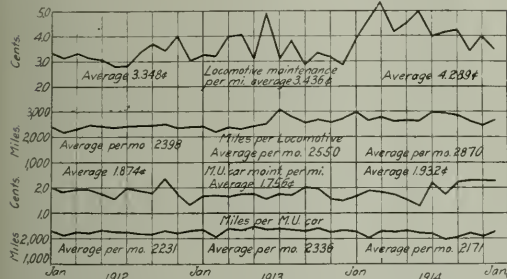 5.0
4.0
3.0
2.0
Cents.
Average 3.348¢
Locomotive maintenance
per mi. average 3.436¢
Average 4.289¢
3,000
2,000
1,000
Miles.
Average per mo 2398
Miles per Locomotive
Average per mo. 2550
Average per mo. 2870
Average 1.874¢
M.U. car maint. per mi.
Average 1.756¢
Average 1.932¢
2.0
1.0
Cents
Miles per M.U. car
2,000
1,000
Miles
Average per mo. 2231
Average per mo. 2336
Average per mo. 2171
Jan 1912 Jan 1913 Jan 1914 Jan.